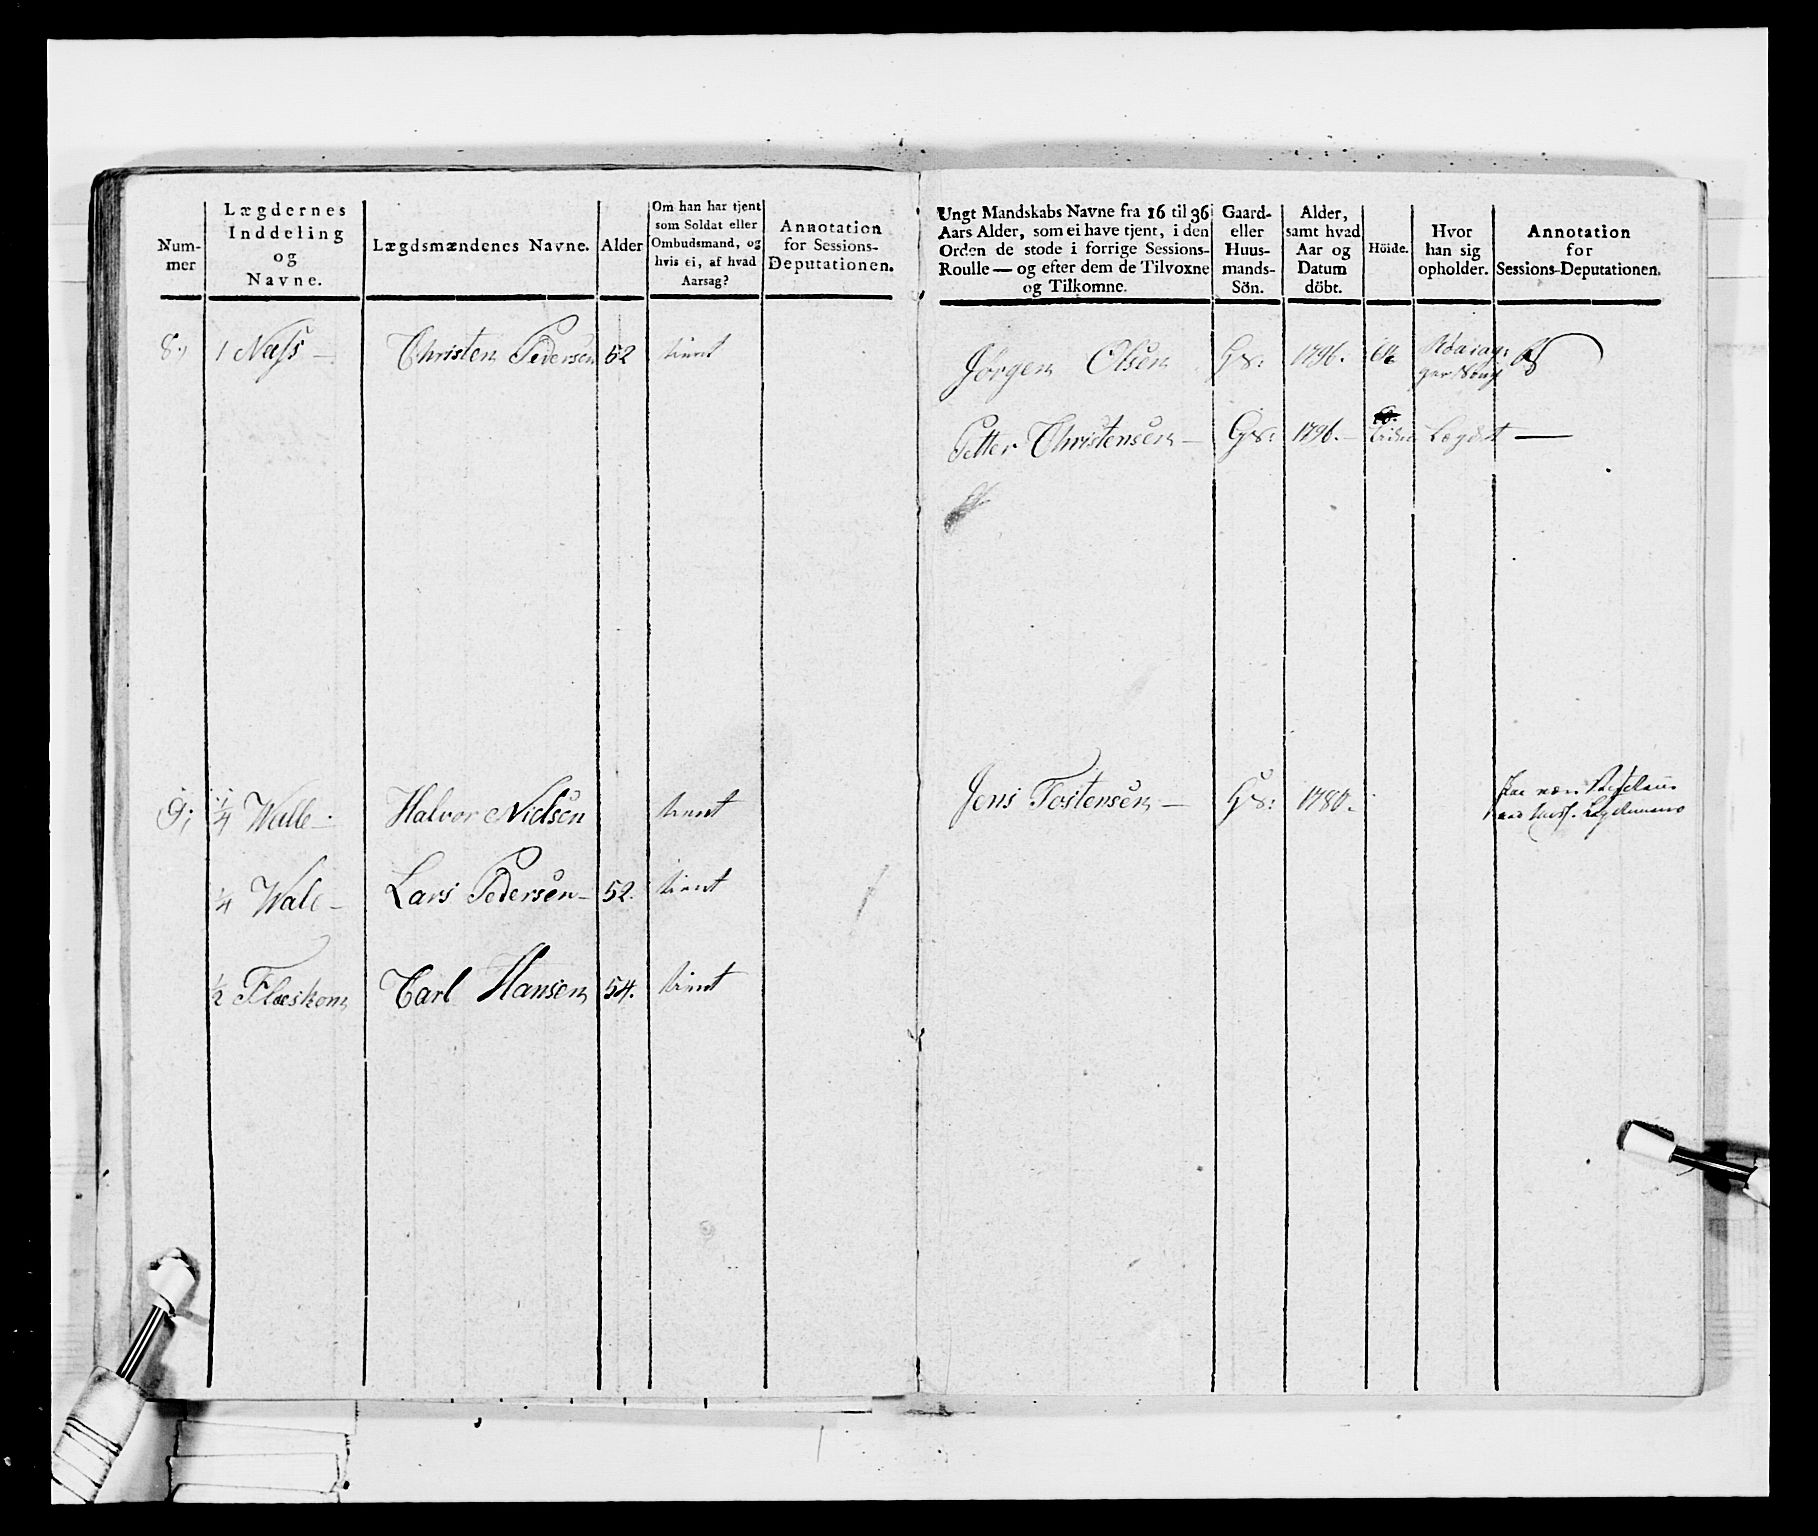 Num-
mer
Lægdernes
Inddeling
og
Navne.
Lægdsmændenes Navne.
Alder
Om han har tjent
som Soldat eller
Ombudsmand, og
hvis ei, af hvad
Aarsag?
Annotation
for Sessions-
Deputationen.
Ungt Mandskabs Navne fra 16 til 36
Aars Alder, som ei have tjent, i den
Orden de stode i forrige Sessions-
Roulle — og efter dem de Tilvoxne
og Tilkomne.
Gaard-
eller
Huus-
mands-
Sön.
Alder,
samt hvad
Aar og
Datum
döbt.
Höide.
Hvor
han sig
opholder.
Annotation
for
Sessions-Deputationen.
8. 1 Næss — Christen Pedersen 52 tient
Jørgen Olsen GS: 1796.
Petter Christensen — GS: 1796. — Lægdet —
9; 1/4 Walle — Halvor Nielsen tient
Jens Tostensen — GS: 1780.
1/4 Wale — Lars Pedersen — 52. tient
1/2 Flæskom Carl Hansen 54. tient